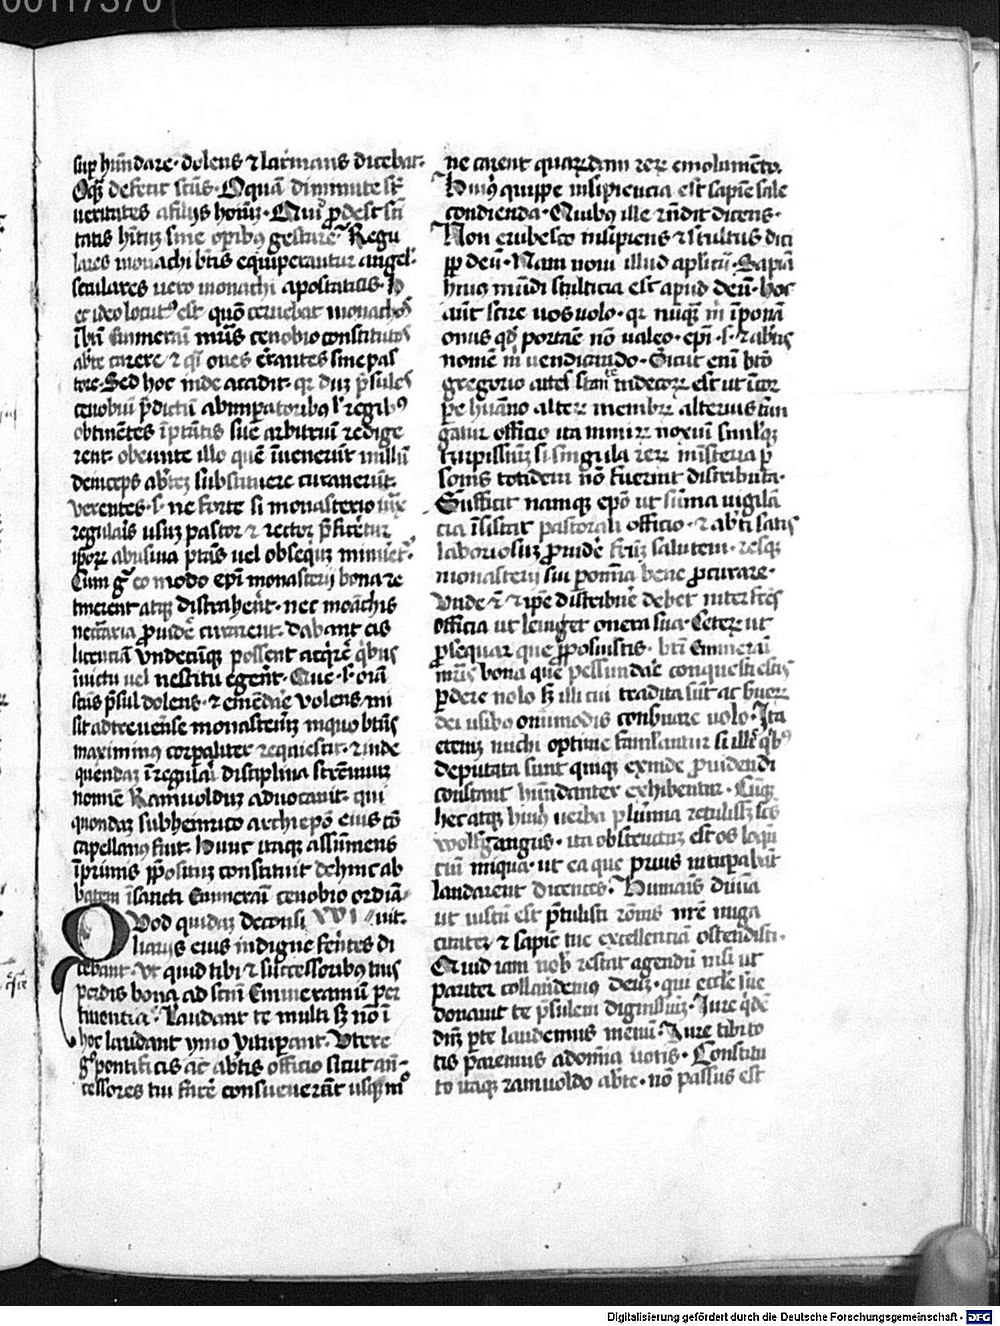 00117376
suꝑ hūndare · dolens ⁊ lacrimans dicebat ·
Oq̄ꝫ defecit sc̄us · O quā diminute sūt
veritates a filiis hoīuꝫ · Quid ꝓdest sc̄i
tatis hītuꝫ sine oꝑibꝰ gestare · Regu
lares monachi bt̄is equiperantur angel̓ ·
seculares vero monachi apostaticis · H
ec ideo locutꝰ est quō cernebat monachos
sc̄i Emmerāi mr̄is cenobio constitutos
abb̄te carere ⁊ q̄i oues errantes sine pas
tore · Sed hoc inde accidit · qꝛ duꝫ p̄sules
cenobiū p̄dictū ab imꝑatoribꝰ ł regibꝰ
obtinētes ī ptātis sue arbitriū redige
rent · obeunte illo quē īuenerūt nullū
deinceps abb̄teꝫ substituere curauerūt ·
verentes · s · ne forte si monasterio iuxͣ
regularis usuꝫ pastor ⁊ rector p̄ficeretur
ipoꝝ abusiua ptās vel obsequiū minueret̉ ·
Cum gͦ eo modo epī monasterij bona re
tinerent atqꝫ distraherēt · nec moāchis
neccāria ꝓuidē curarent · dabant eis
licenciā vndecūqꝫ possent acq̄rē q̄bus
victu vel vestitu egerēt · Que · s · oīa
sc̄us p̄sul dolens · ⁊ emēdāe volens mi
sit ad treuerēse monasteriū in quo btūs
maximinꝰ corꝑaliter requiescit · ⁊ inde
quendaꝫ ī regulari disciplina strēnuū
nomine Ramuolduꝫ aduocauit · qui
quondaꝫ sub heinrico archiepō eius cō
capellanꝰ fuit · Hunc itaqꝫ assumens
īprimis p̄positum constituit dehinc ab
batem ī sancti Emmerāi cenobio ordiā ·
QVod quidaꝫ de consi XVI uit ·
liariis eius indigne ferētes di
cebant · Vt quid tibi ⁊ successoribꝰ tuis
perdis bona ad sc̄m Emmeramū per
tinentia · Laudant te multi sꝫ nō ī
hoc laudant ymo vituꝑant · Vtere
gͦ pontificis ac abb̄tis officio sicut an ·
tecessores tui facē consueuerāt usqꝫ mͦ
ne careat quarūdam rerꝝ emolumēto ·
Huiꝰ quippe insipiencia est sapiē sale
condienda · Quibus ille rn̄dit dicens ·
Non erubesco insipiens ⁊ stultus dici
ꝓp deū · Nam noui illud aplicū · Sapīa
huiꝰ mūdi stulticia est apud deū · hoc
aūt scire vos volo · qꝛ nūqꝫ m̄ īponā
onus qd̄ portare nō valeo · epī · s · ⁊ abb̄tis
nomē m̄ vendicando · Sicut enī bt̄o
gregorio attestante indecorꝝ est ut ī cor
pe hūano alterꝝ membrꝝ alterius fūn
gatur officio ita nimirꝝ noxiū simulqꝫ
turpissimū si singula rerꝝ misteria ꝑ
sonis totidem nō fuerint distributa ·
Sufficit namqꝫ epō ut sūma vigilā
cia īsistat pastorali officio · ⁊ abb̄ti satis
laboriosuꝫ ꝓuidē fr̄uꝫ salutem · resqꝫ
monasterii sui ꝑ omīa bene ꝓcurare ·
Vnde ē ⁊ ipē distribuē debet inter frēs
officia ut leuiget onera sua · Ceterꝝ ut
ꝓsequar que ꝓposuistis · bt̄i Emmerāi
mr̄is bona que pessundāe conquesti estis
ꝑdere nolo sꝫ illi cui tradita sūt ac suorꝝ
dei usibꝰ omnimodis conseruare volo · Ita
etenī michi optime famulantur si illis q̄bꝰ
deputata sunt queqꝫ exinde ꝓuidendi
constant hūndanter exhibentur · Cūqꝫ
hec atqꝫ huiꝰ verba ꝑ plurima retulisset sc̄s
wolfgangus · ita obstructuꝫ est os loq̄n
ciū iniqua · ut ea que prius vituꝑabāt
laudarent dicentes · Humāis diuīa
ut iustū est p̄tulisti rōnis nr̄e nuga
citatez ⁊ sapīe tue excellenciā ostendisti ·
Quid iam nob̄ restat agendū nisi ut
pariter collaudemꝰ deuꝫ · qui eccl̄ie sue
donauit te p̄sulem dignissimū · Jure q̄de
dn̄i ꝑ te laudemus menū · Jure tibi to
tis paremus ad omīa votis · Constitu
to itaqꝫ ramuoldo abb̄te · nō passus est
Digitalisierung gefördert durch die Deutsche Forschungsgemeinschaft - DFG